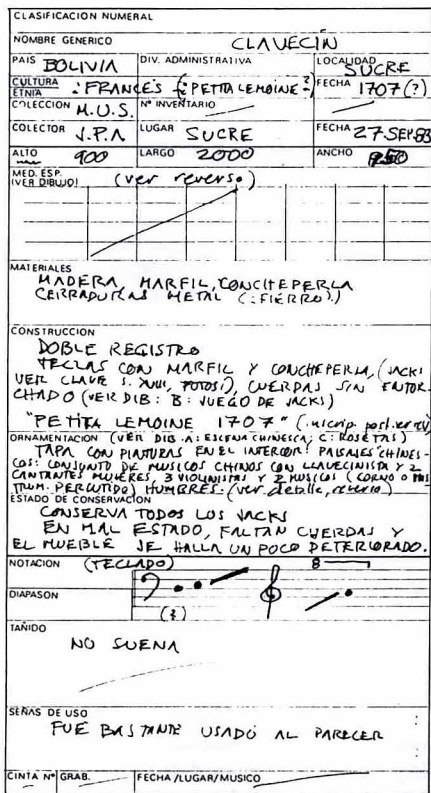 CLASIFICACION NUMERAL
NOMBRE GENERICO CLAVECÍN
PAIS BOLIVIA DIV. ADMINISTRATIVA LOCALIDAD SUCRE
CULTURA ETNIA : FRANCÉS (PETITA LEMOINE ?) FECHA 1707 (?)
COLECCION M.U.S. Nº INVENTARIO
COLECTOR J.P.A LUGAR SUCRE FECHA 27 SEP. 83
ALTO 900 LARGO 2000 ANCHO
MED. ESP. (VER DIBUJO) (ver reverso)
MATERIALES
MADERA, MARFIL, CONCHEPERLA
CERRADURAS METAL (: FIERRO.)
CONSTRUCCION
DOBLE REGISTRO
TECLAS CON MARFIL Y CONCHEPERLA, (JACKS
VER CLAVE S. XVIII, POTOSI), CUERDAS SIN ENTOR
CHADO (VER DIB: B: JUEGO DE JACKS)
"PETITA LEMOINE 1707" (inscrip.
ORNAMENTACION (VER DIB. A: ESCENA CHINESCA, C: ROSETAS)
TAPA CON PINTURAS EN EL INTERIOR: PAISAJES CHINES-
COS: CONJUNTO DE MUSICOS CHINOS CON CLAVECINISTA Y 2
CANTANTES MUJERES, 3 VIOLINISTAS Y 2 MUSICOS (CORNO O
TRUM. PERCUTIDO) HOMBRES. (ver detalle, reverso)
ESTADO DE CONSERVACIÓN
CONSERVA TODOS LOS JACKS
EN MAL ESTADO, FALTAN CUERDAS Y
EL MUEBLE SE HALLA UN POCO DETERIORADO.
NOTACION (TECLADO) 8
DIAPASON (?)
TAÑIDO
NO SUENA
SEÑAS DE USO
FUE BASTANTE USADO AL PARECER
CINTA Nº GRAB. FECHA/LUGAR/MUSICO